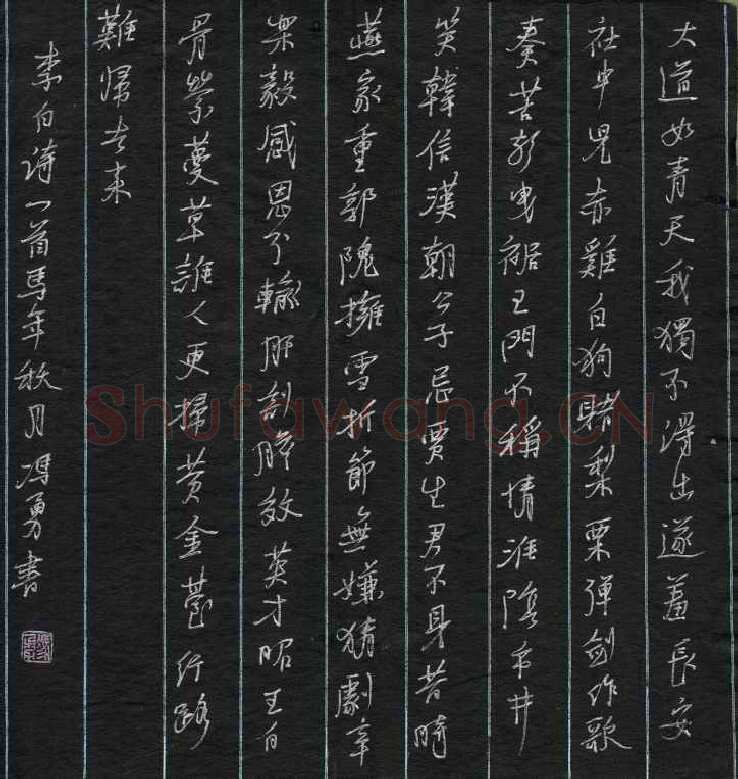 大道如青天我獨不得出遂羞長安
社中兒赤雞白狗賭梨栗彈劍作歌
奏苦聲曳裾王門不稱情淮陰市井
笑韓信漢朝公子忌賈生君不見昔時
燕家重郭隗擁雪折節無嫌猜劇辛
樂毅感恩分輸肝剖膽效英才昭王白
骨縈蔓草誰人更掃黃金臺行路
難歸去來
李白詩一首馬年秋月馮勇書
Shufawang.CN